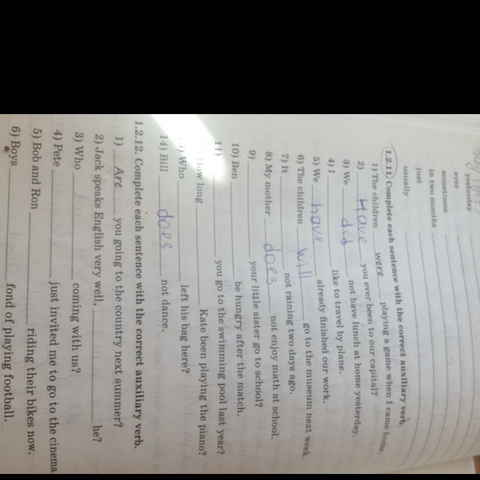 yesterday
ever
sometimes
in two months
just
usually
1.2.11. Complete each sentence with the correct auxiliary verb.
1) The children were playing a game when I came home.
2) Have you ever been to our capital?
3) We did not have lunch at home yesterday.
4) I like to travel by plane.
5) We have already finished our work.
6) The children will go to the museum next week.
7) It not raining two days ago.
8) My mother does not enjoy math at school.
9) your little sister go to school?
10) Ben be hungry after the match.
11) you go to the swimming pool last year?
How long Kate been playing the piano?
Who left his bag here?
14) Bill does not dance.
1.2.12. Complete each sentence with the correct auxiliary verb.
1) Are you going to the country next summer?
2) Jack speaks English very well, he?
3) Who coming with us?
4) Pete just invited me to go to the cinema
5) Bob and Ron riding their bikes now.
6) Boys fond of playing football.